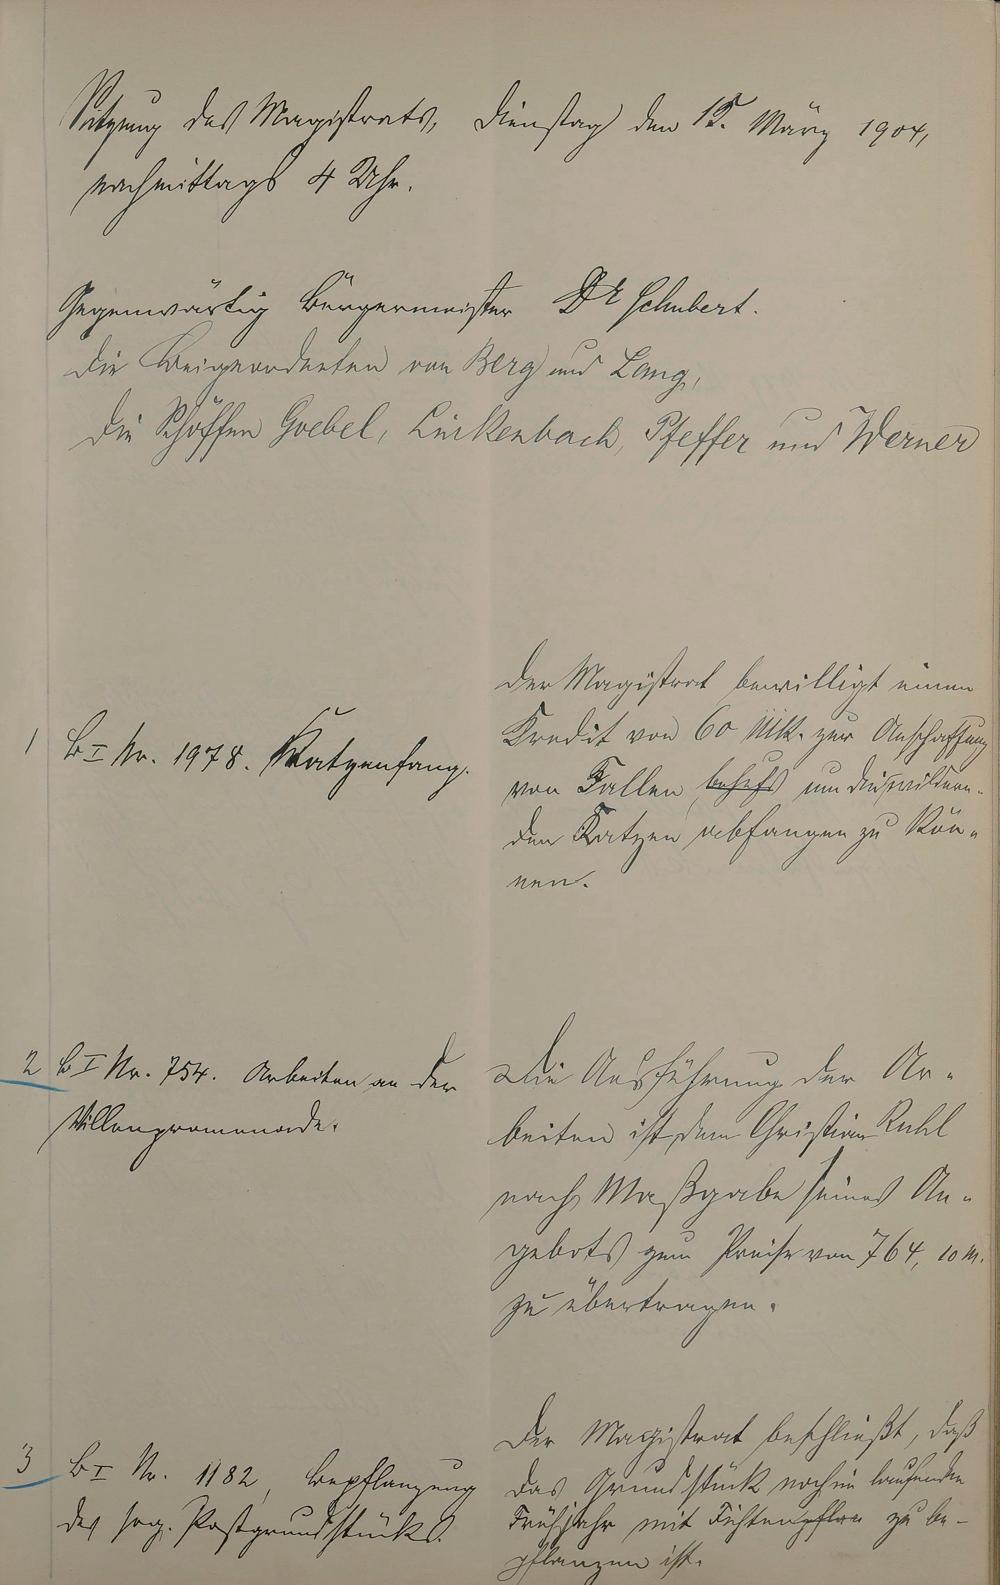 Sitzung des Magistrats, Dienstag den 15. März 1904,
nachmittags 4 Uhr.
Gegenwärtig Bürgermeister Dr Schubert.
die Beigeordneten von Berg und Lang,
die Schöffen Goebel, Linkenbach, Pfeffer und Werner
1 B I Nr. 1978. Katzenfang.
Der Magistrat bewilligt einen
Kredit von 60 Mk. zur Anschaffung
von Fallen behufs um die wildern-
den Katzen abfangen zu kön-
nen.
2 B I Nr. 754. Arbeiten an der
Villenpromenade.
Die Ausführung der Ar-
beiten ist dem Christian Ruhl
nach Maßgabe seines An-
gebots zum Preise von 764, 10 M.
zu übertragen.
3 B I Nr. 1182, Bepflanzung
des sog. Postgrundstücks.
Der Magistrat beschließt, daß
das Grundstück noch im laufenden
Frühjahr mit Fichtenpflan zu be-
pflanzen ist.